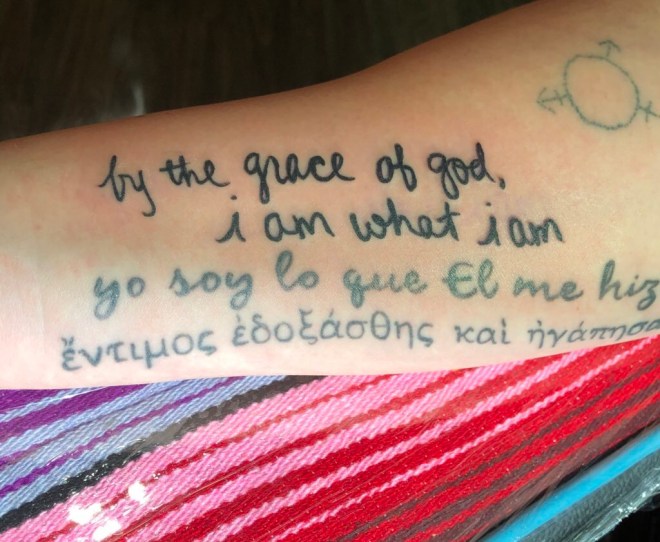 by the grace of god,
i am what i am
yo soy lo que El me hiz
ἔντιμος ἐδοξάσθης καὶ ἠγάπησα